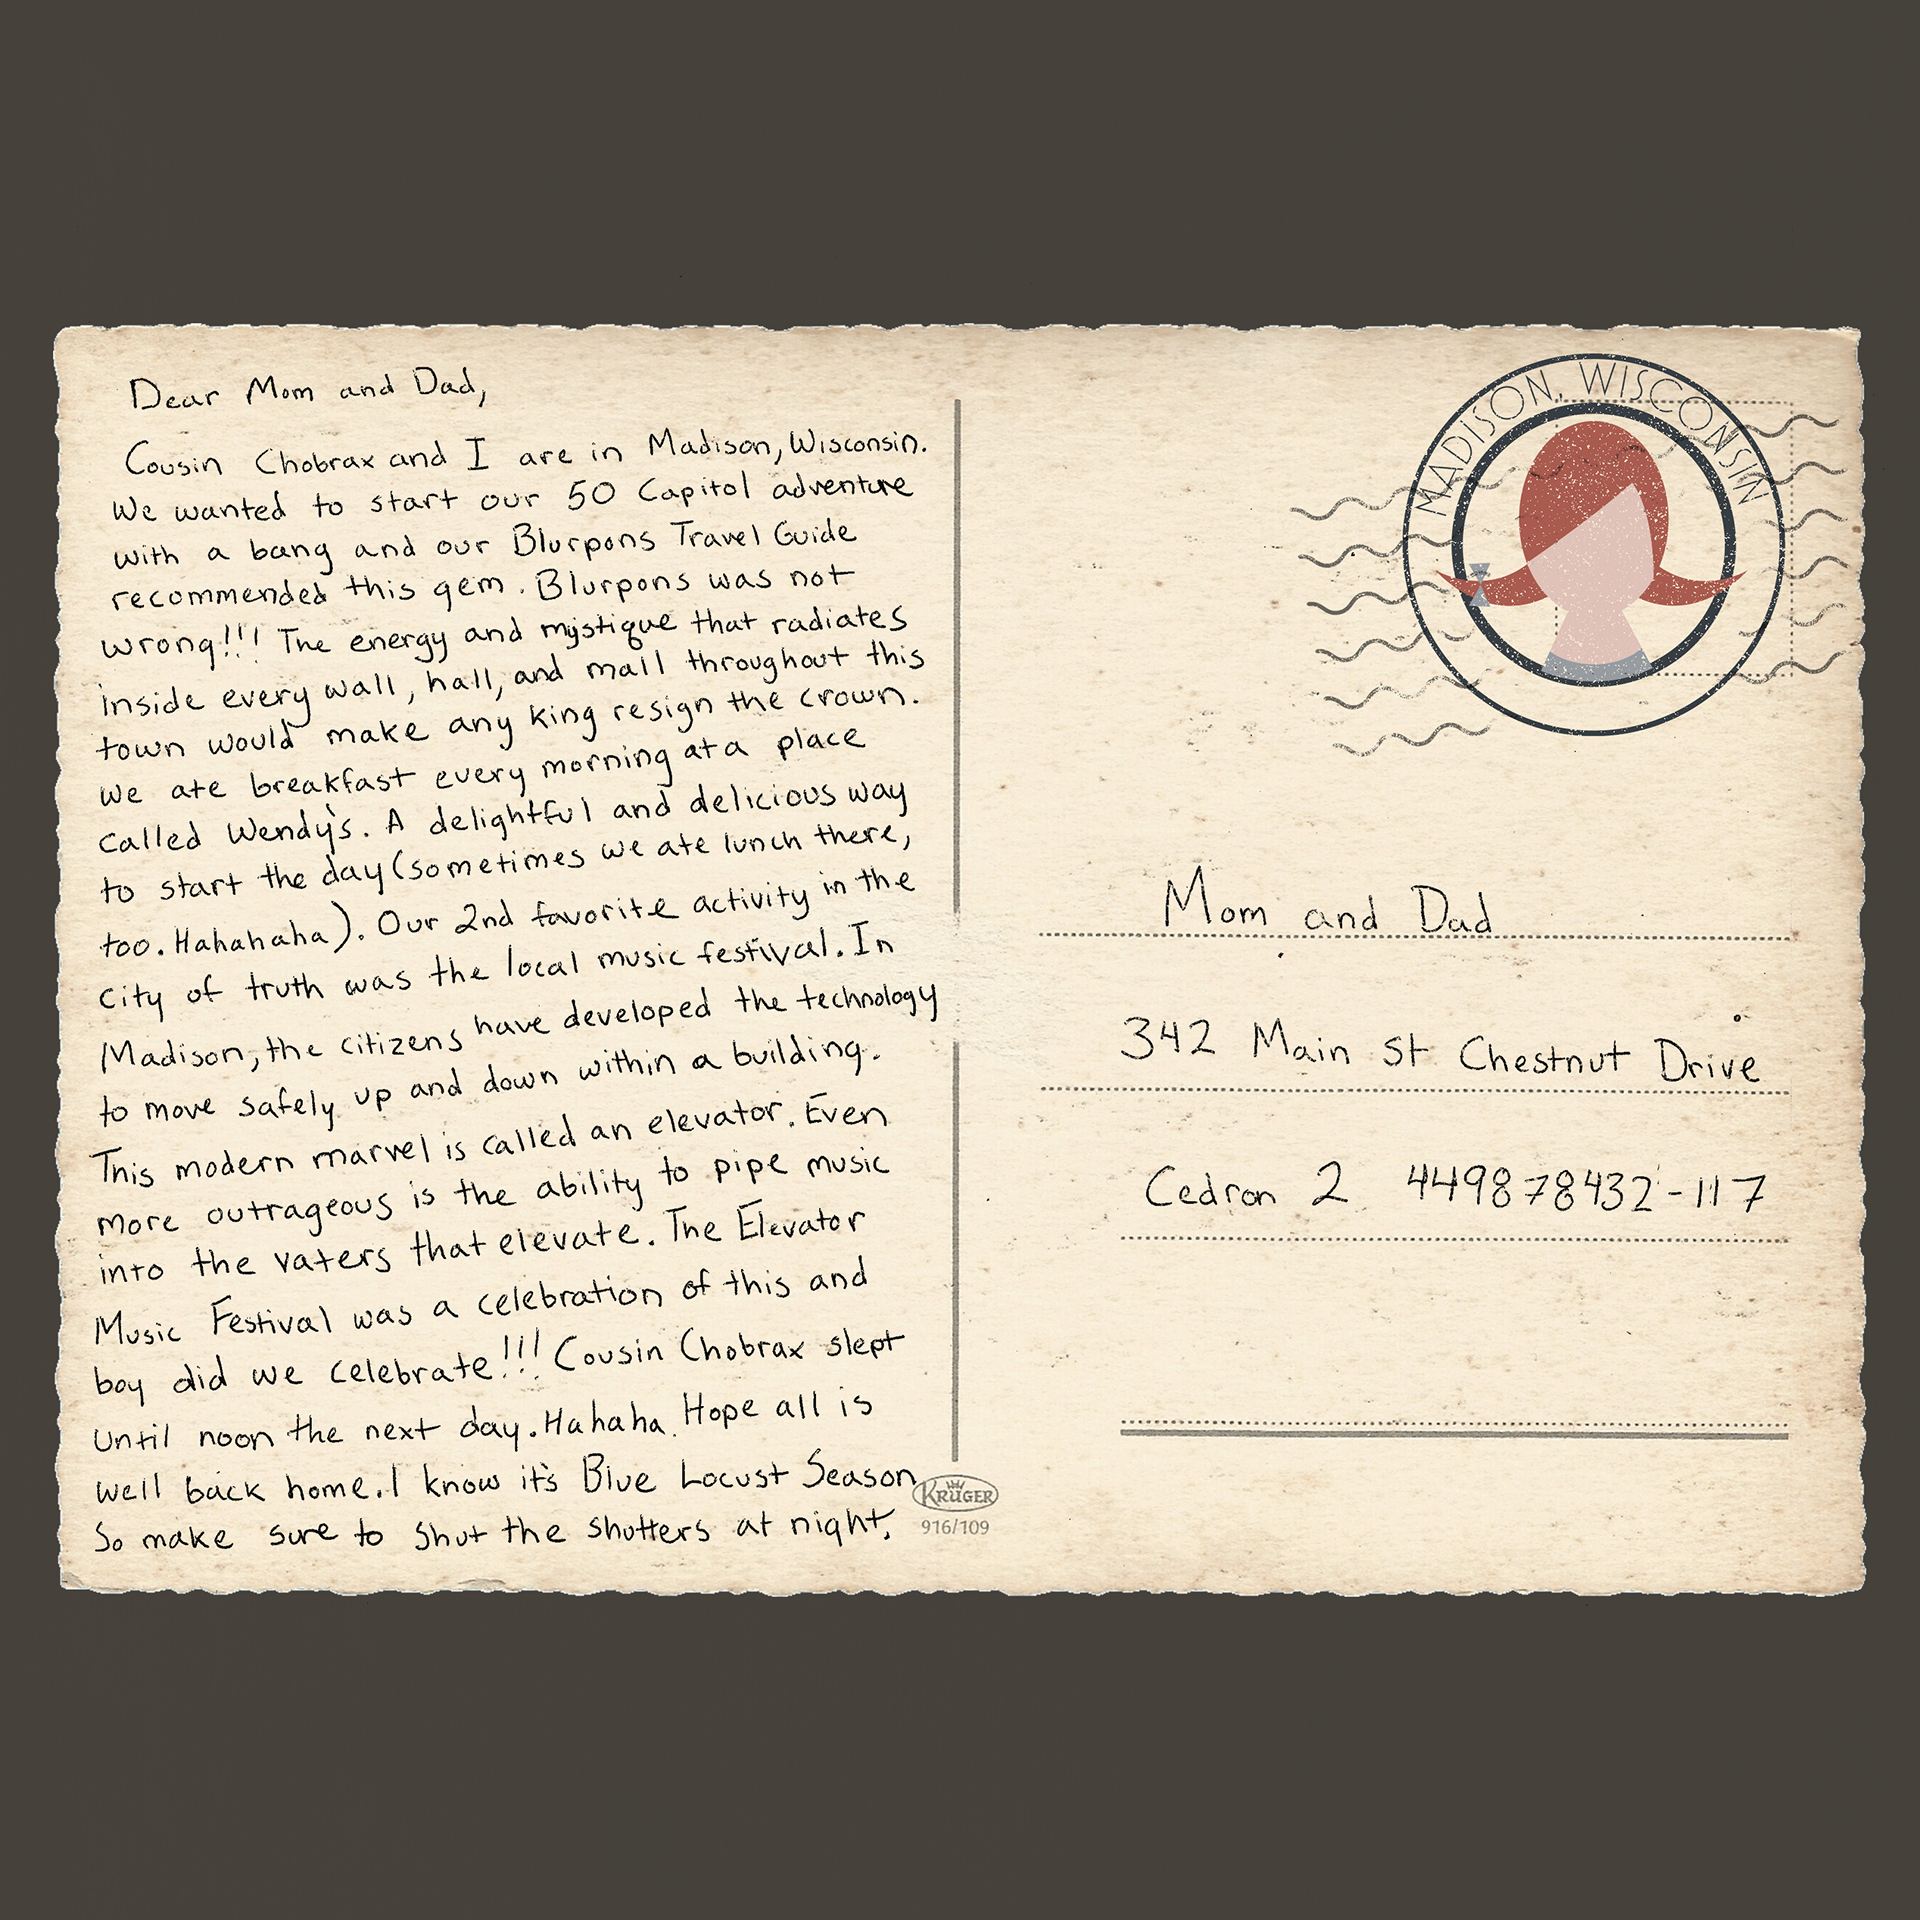 Dear Mom and Dad,
Cousin Chobrax and I are in Madison, Wisconsin.
We wanted to start our 50 Capitol adventure
with a bang and our Blurpons Travel Guide
recommended this gem. Blurpons was not
wrong!!! The energy and mystique that radiates
inside every wall, hall, and mall throughout this
town would make any king resign the crown.
We ate breakfast every morning at a place
called Wendy's. A delightful and delicious way
to start the day (sometimes we ate lunch there,
too. Hahahaha). Our 2nd favorite activity in the
city of truth was the local music festival. In
Madison, the citizens have developed the technology
to move safely up and down within a building.
This modern marvel is called an elevator. Even
more outrageous is the ability to pipe music
into the vaters that elevate. The Elevator
Music Festival was a celebration of this and
boy did we celebrate!!! Cousin Chobrax slept
until noon the next day. Hahaha. Hope all is
well back home. I know it's Blue Locust Season
So make sure to shut the shutters at night.
KRÜGER
916/109
MADISON, WISCONSIN
Mom and Dad
342 Main St Chestnut Drive
Cedron 2 449878432-117